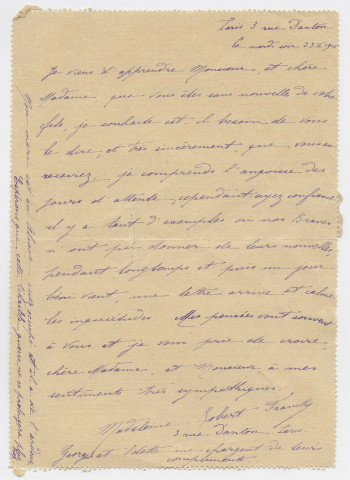 Paris 3 rue Danton
le mardi soir 23.6.915
Je viens d'apprendre Monsieur, et chère
Madame, que vous êtes sans nouvelle de votre
fils, je souhaite est-il besoin de vous
le dire, et très sincèrement que vous en
receviez je comprends l'angoisse des
jours d'attente, cependant ayez confiance
il y a tant d'exemples où nos Braves
n'ont pu donner de leurs nouvelles
pendant longtemps et puis un jour
béni vient, une lettre arrive et calme
les inquiétudes Mes pensées vont souvent
à vous et je vous prie de croire,
chère Madame, et Monsieur, à mes
sentiments très sympathiques.
Madeleine Jobert
3 rue Danton, Paris
Georges et Odette me chargent de leurs
compliments
Mon mari est en Alsace et il a de l'ardeur
Espérons que cette terrible guerre ne se prolongera pas